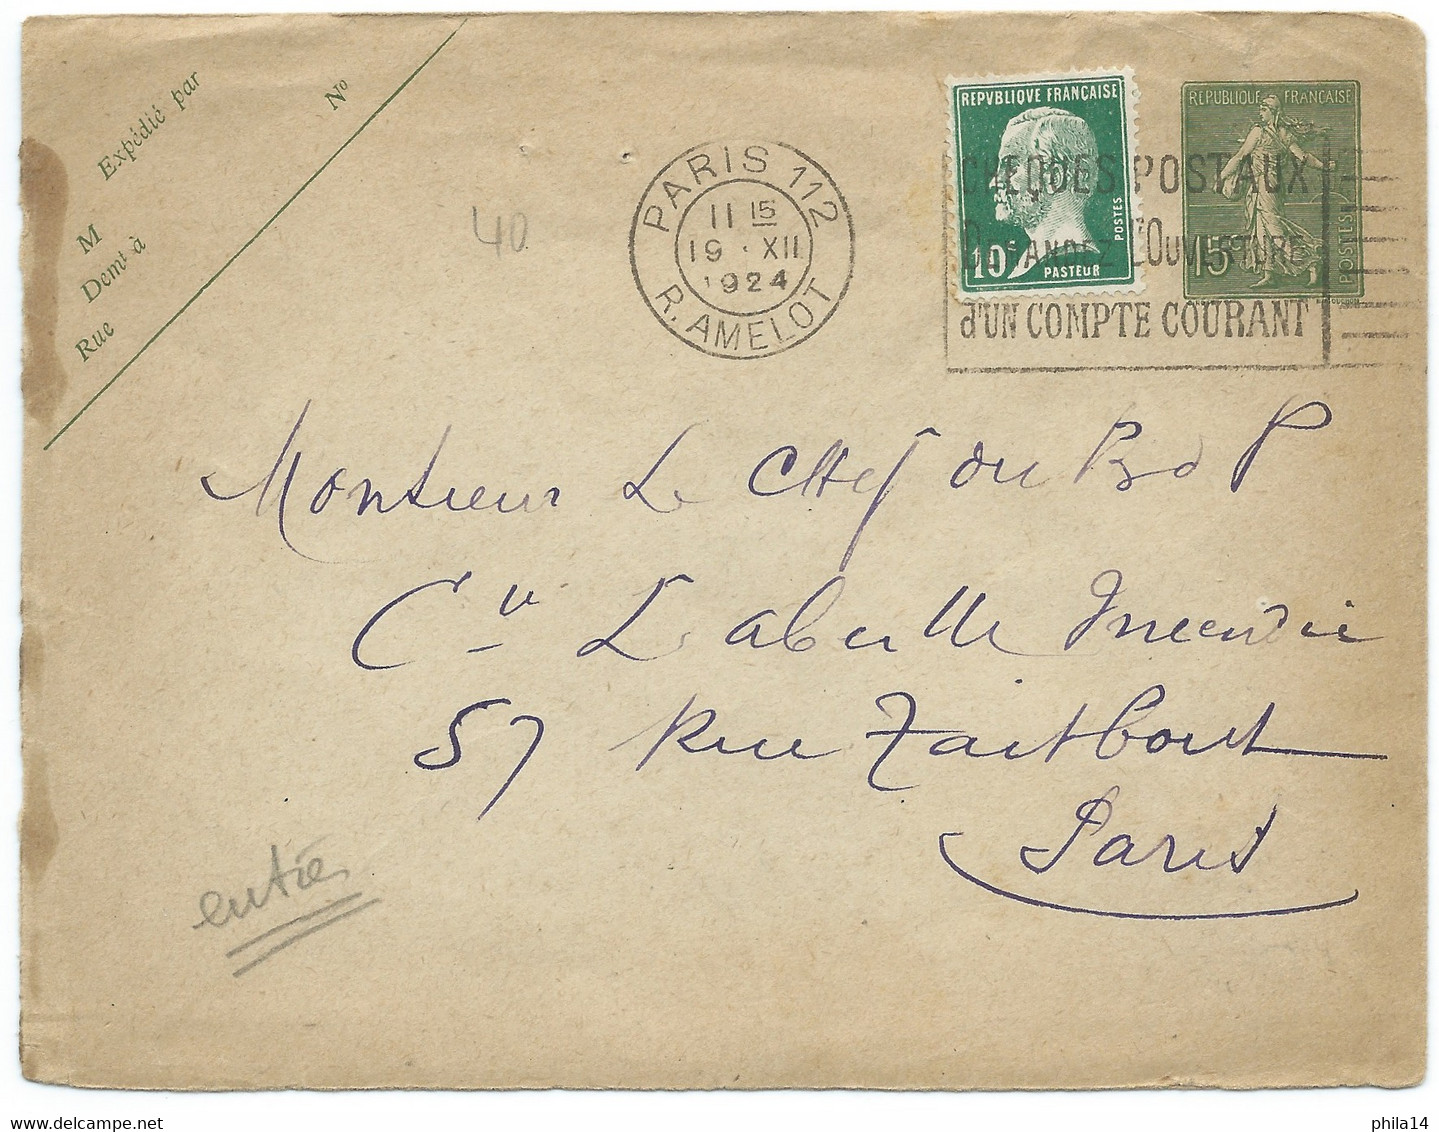 Expédié par
M
Demt à
Rue
No
40
PARIS 112
11 15
19 · XII
1924
R. AMELOT
REPVBLIQVE FRANÇAISE
10c
PASTEUR
POSTES
REPUBLIQUE FRANÇAISE
15c
POSTES
CHEQUES POSTAUX
DEMANDEZ L'OUVERTURE
d'UN COMPTE COURANT
Monsieur Le Chef du B d P
Cie L'abeille Incendie
57 Rue Taitbout
Paris
entier
phila14